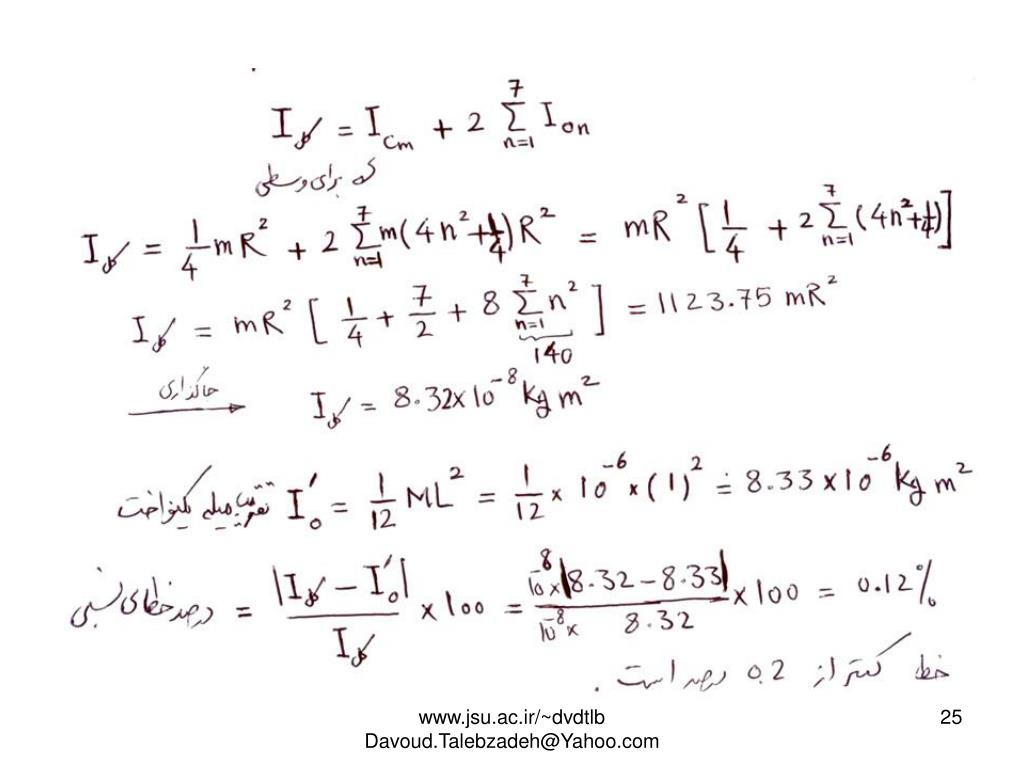 I کل = I_cm + 2 Σ_{n=1}^{7} I_{on}
که برای وسطی
I کل = 1/4 mR² + 2 Σ_{n=1}^{7} m(4n² + 1/4)R² = mR² [1/4 + 2 Σ_{n=1}^{7} (4n² + 1/4)]
I کل = mR² [1/4 + 7/2 + 8 Σ_{n=1}^{7} n²] = 1123.75 mR²
140
جاگذاری → I کل = 8.32×10⁻⁸ kg m²
تقریب میله یکنواخت I'₀ = 1/12 ML² = 1/12 × 10⁻⁶ × (1)² ≐ 8.33×10⁻⁶ kg m²
درصد خطای نسبی = |I کل − I'₀| / I کل × 100 = 10⁻⁸×|8.32−8.33| / 10⁻⁸× 8.32 × 100 = 0.12%
خطا کمتر از 0.2 درصد است .
www.jsu.ac.ir/~dvdtlb
Davoud.Talebzadeh@Yahoo.com
25